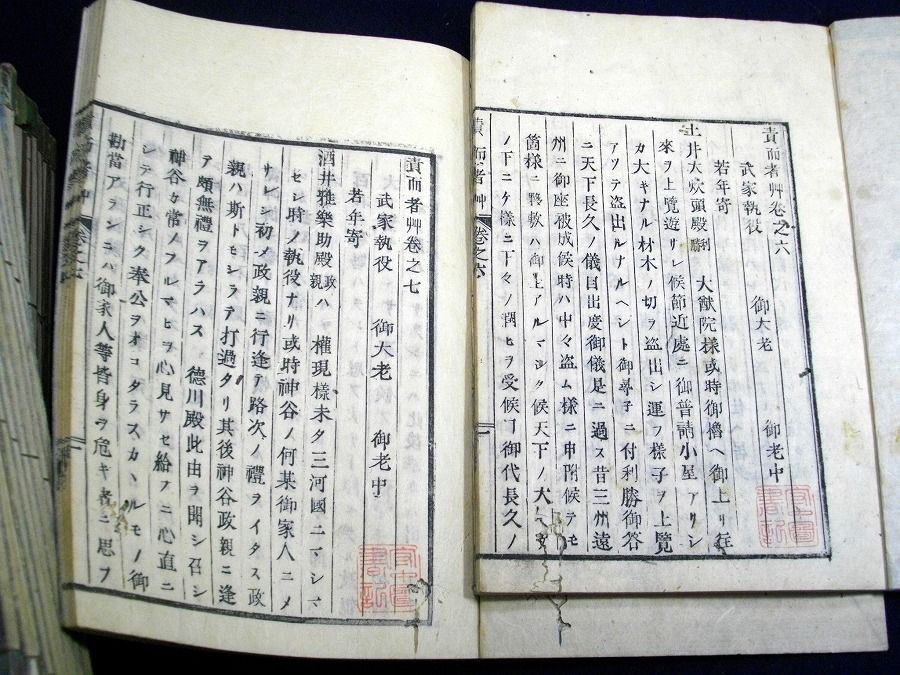 責而者艸卷之六
武家執役　御大老　御老中
若年寄
土井大炊頭殿利勝　大猷院樣或時御櫓ヘ御上リ往
來ヲ上覽遊リレ候節近處ニ御普請小屋アリシ
カ大キナル材木ノ切ヲ盗出シ運フ樣子ヲ上覽
アソテ盗出ルナルヘシト御尋子ニ付利勝御答
ニ天下長久ノ儀目出慶御儀是ニ過ス昔三州遠
州ニ御座被成候時ハ中々盗ム樣ニ申附候テモ
箇樣ニ
ハ御上アルマシク候天下ノ大
ノ下ニケ樣ニ下々ノ潤ヒヲ受候ヿ御代長久ノ
責而者艸　卷之六
責而者艸卷之七
武家執役　御大老　御老中
若年寄
酒井雅樂助殿政親ハ　權現樣未タ三河國ニマシマ
セシ時ノ執役ナリ或時神谷ノ何某御家人ニメ
サレシ初メ政親ニ行逢テ路次ノ禮ヲイタス政
親ハ斯トモシラテ打過タリ其後神谷政親ニ逢
テ頗無禮ヲアラハス　德川殿此由ヲ聞シ召シ
神谷カ常ノフルマヒヲ心見サセ給フニ心直ニ
シテ行正シク奉公ヲオコタラスカヽルモノ御
勘當アランニハ御家人等皆身ヲ危キ者ニ思フ